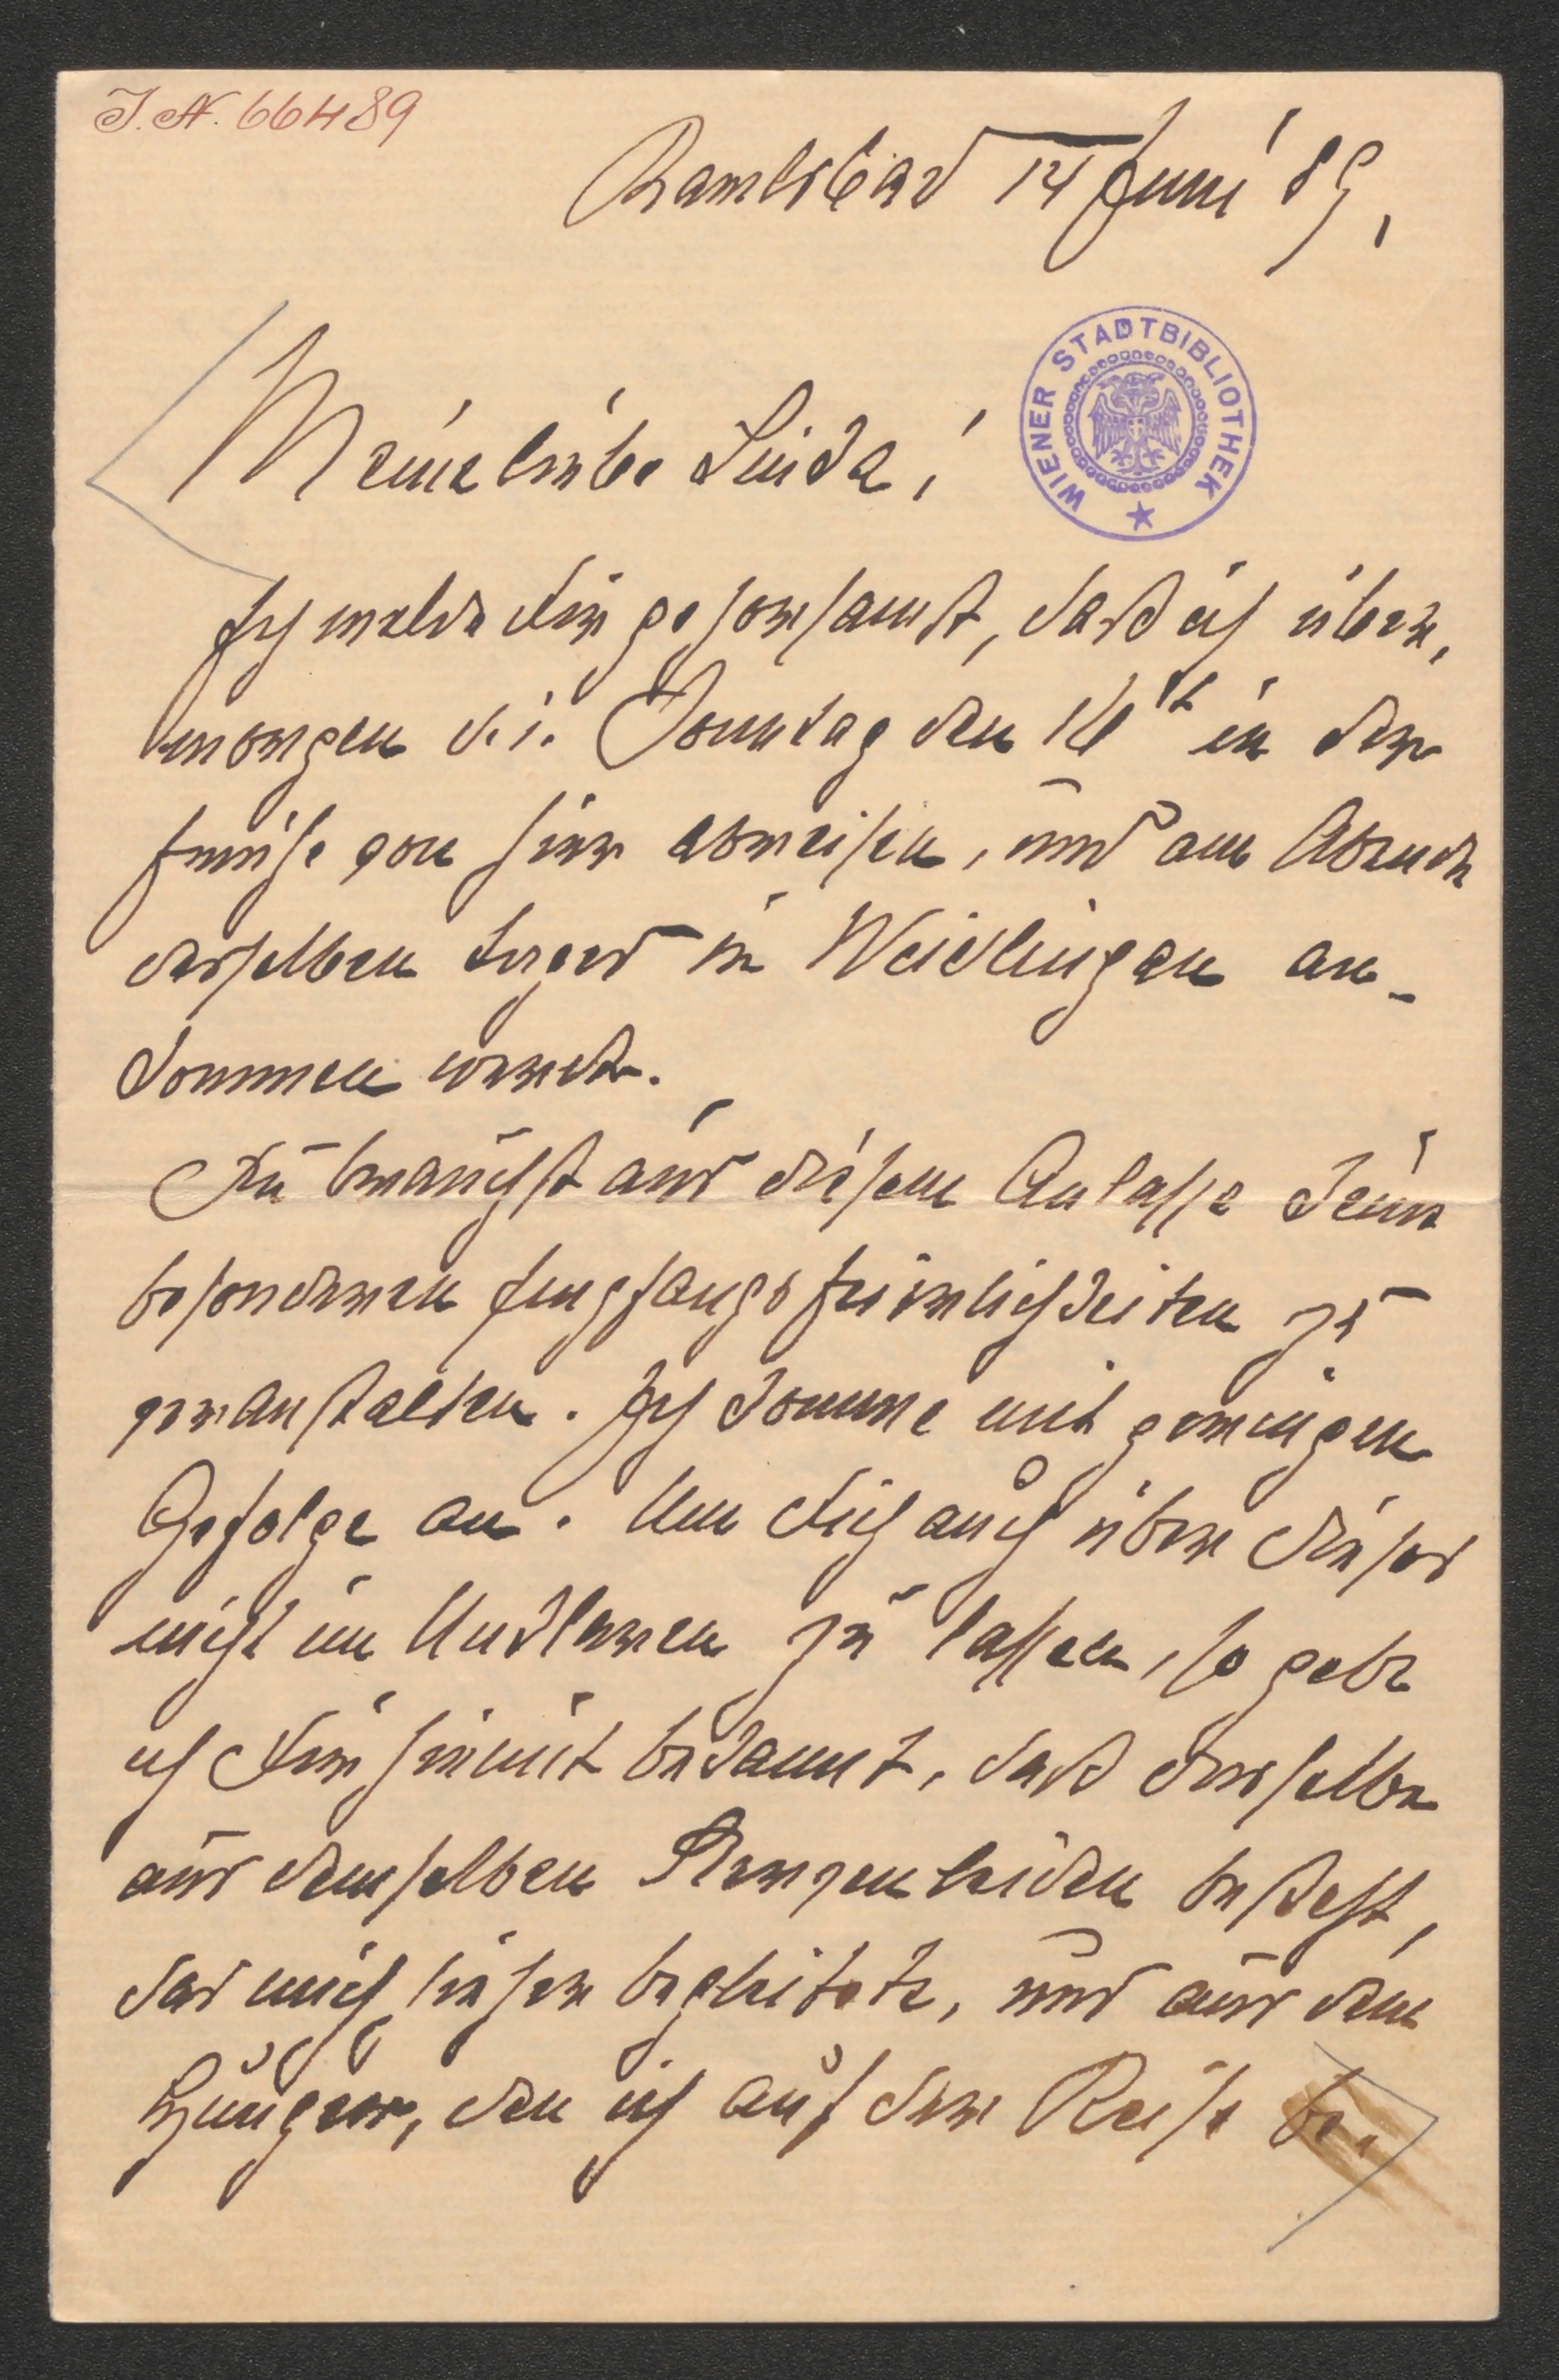 J. N. 66489
Karlsbad 14 Juni 89,
Meine liebe Linda!
WIENER STADTBIBLIOTHEK
Ich melde Dir gehorsamst, daß ich über,
morgen d. i. Sonntag den 16t in der
Früh von hier abreisen, und am Abende
desselben Tages in Weidlingau an-
kommen werde.
Du brauchst aus diesem Anlasse keine
besonderen Empfangsfeierlichkeiten zu
veranstalten. Ich komme mit geringem
Gefolge an. Um Dich auch über dieses
nicht im Unklaren zu lassen, so gebe
ich Dir hiemit bekannt, daß dasselbe
aus demselben Nervenleiden besteht,
das mich hieher begleitete, und aus dem
Hunger, den ich auf der Reise be,